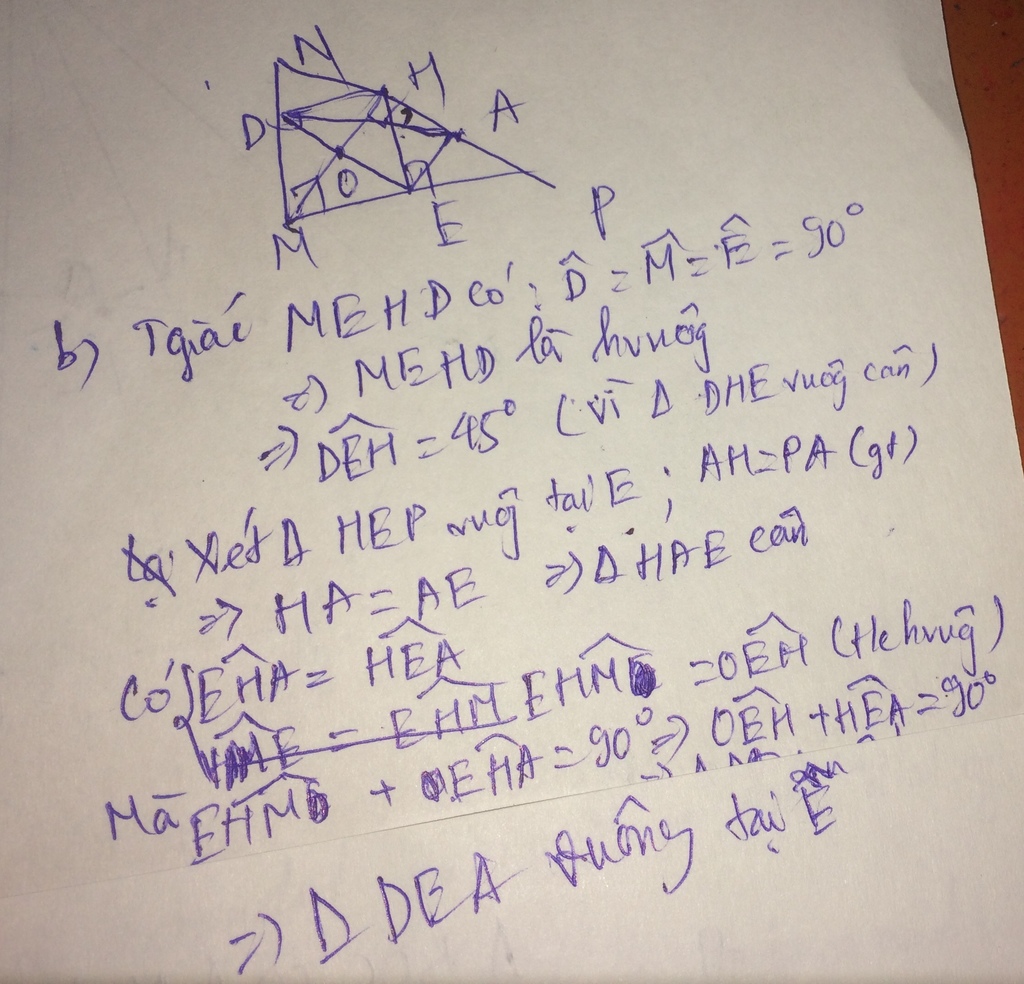 N
H
A
D
O
P
M
E
b) Tgiác MEHD có: D̂ = M̂ = Ê = 90°
=> MEHD là hvuôg
=> DÊH = 45° (vì Δ DHE vuôg cân)
Xét Δ HEP vuôg tại E ; AH = PA (gt)
=> HA = AE => Δ HAE cân
Có EĤA = HÊA
EĤM = OÊH (Hc hvuôg)
Mà EĤM + EĤA = 90° => OÊH + HÊA = 90°
=> Δ DEA vuông tại Ê